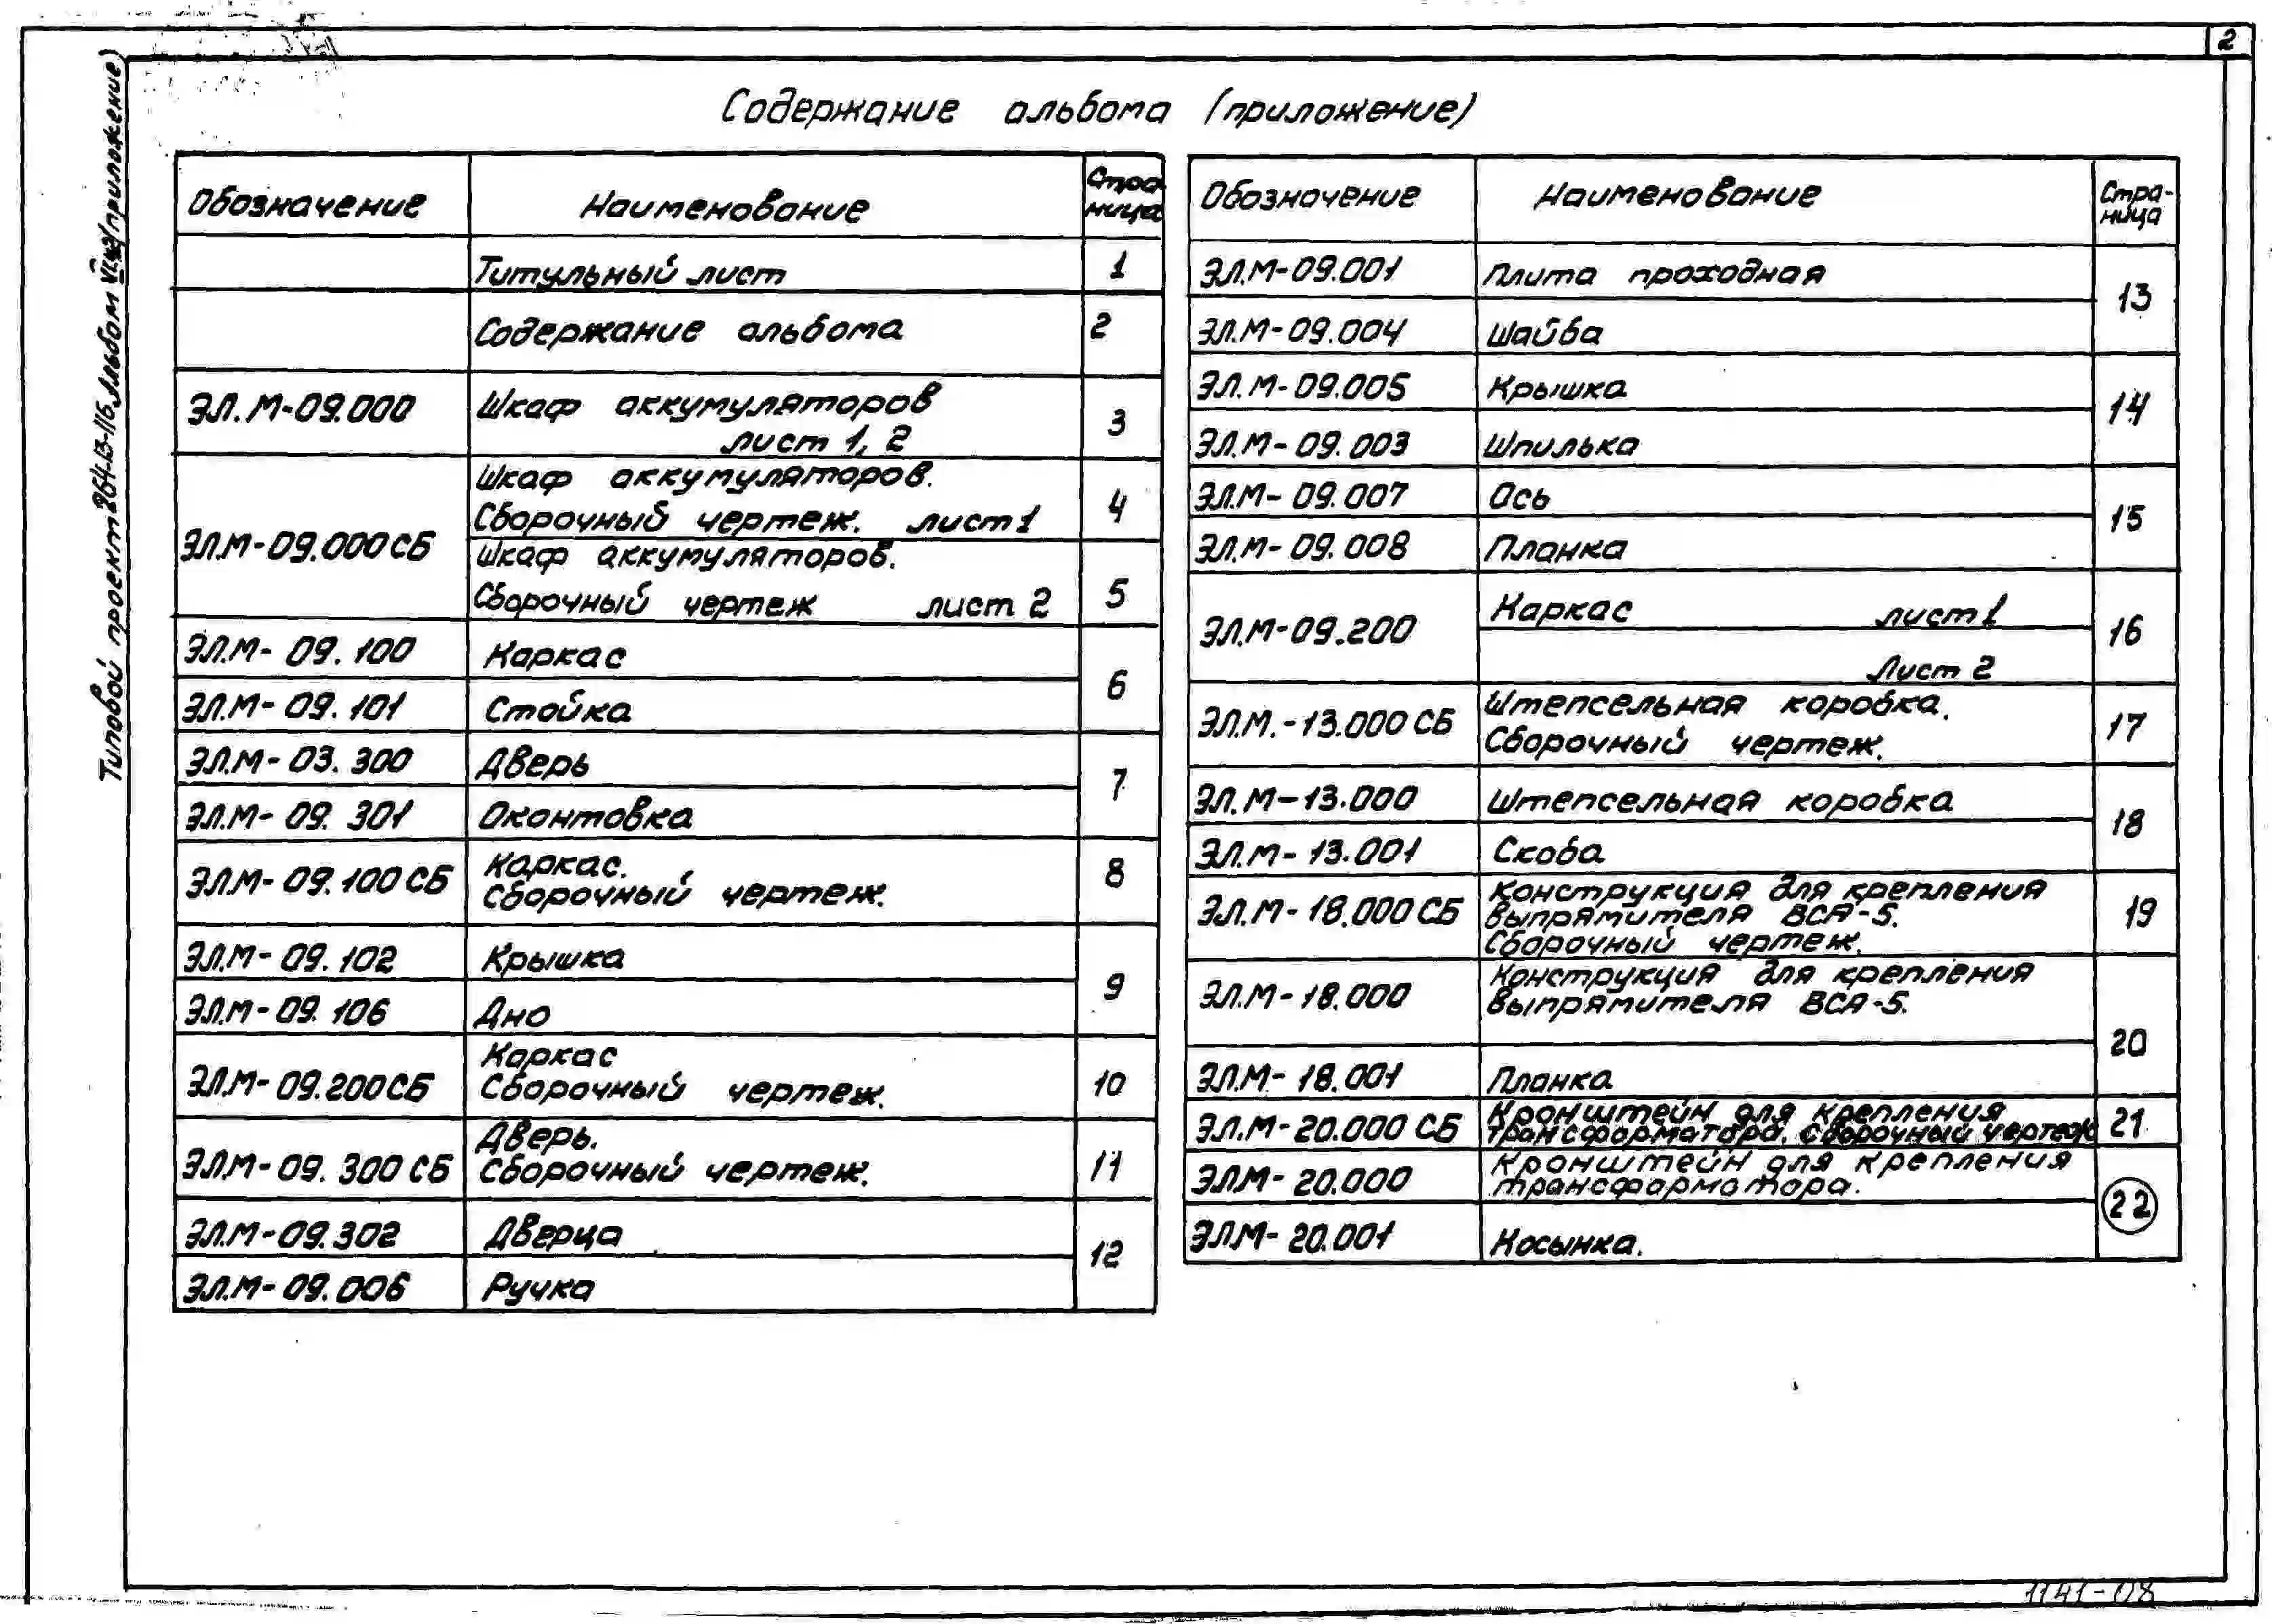 2
Содержание альбома (приложение)
Типовой проект 264-13-116 Альбом (приложение)
Обозначение Наименование Стра-
ница
Титульный лист 1
Содержание альбома 2
ЭЛ.М-09.000 Шкаф аккумуляторов
лист 1, 2 3
ЭЛ.М-09.000СБ Шкаф аккумуляторов.
Сборочный чертеж. лист 1 4
Шкаф аккумуляторов.
Сборочный чертеж лист 2 5
ЭЛ.М-09.100 Каркас 6
ЭЛ.М-09.101 Стойка
ЭЛ.М-03.300 Дверь 7
ЭЛ.М-09.301 Окантовка
ЭЛ.М-09.100СБ Каркас.
Сборочный чертеж. 8
ЭЛ.М-09.102 Крышка 9
ЭЛ.М-09.106 Дно
ЭЛ.М-09.200СБ Каркас
Сборочный чертеж. 10
ЭЛ.М-09.300СБ Дверь.
Сборочный чертеж. 11
ЭЛ.М-09.302 Дверца 12
ЭЛ.М-09.006 Ручка
Обозначение Наименование Стра-
ница
ЭЛ.М-09.001 Плита проходная 13
ЭЛ.М-09.004 Шайба
ЭЛ.М-09.005 Крышка 14
ЭЛ.М-09.003 Шпилька
ЭЛ.М-09.007 Ось 15
ЭЛ.М-09.008 Планка
ЭЛ.М-09.200 Каркас лист 1 16
Лист 2
ЭЛ.М.-13.000СБ Штепсельная коробка.
Сборочный чертеж. 17
ЭЛ.М-13.000 Штепсельная коробка 18
ЭЛ.М-13.001 Скоба
ЭЛ.М-18.000СБ Конструкция для крепления
выпрямителя ВСА-5.
Сборочный чертеж. 19
ЭЛ.М-18.000 Конструкция для крепления
выпрямителя ВСА-5. 20
ЭЛ.М-18.001 Планка
ЭЛ.М-20.000 СБ Кронштейн для крепления
трансформатора. Сборочный чертеж 21
ЭЛ.М-20.000 Кронштейн для крепления
трансформатора. 22
ЭЛ.М-20.001 Косынка.
1141-08